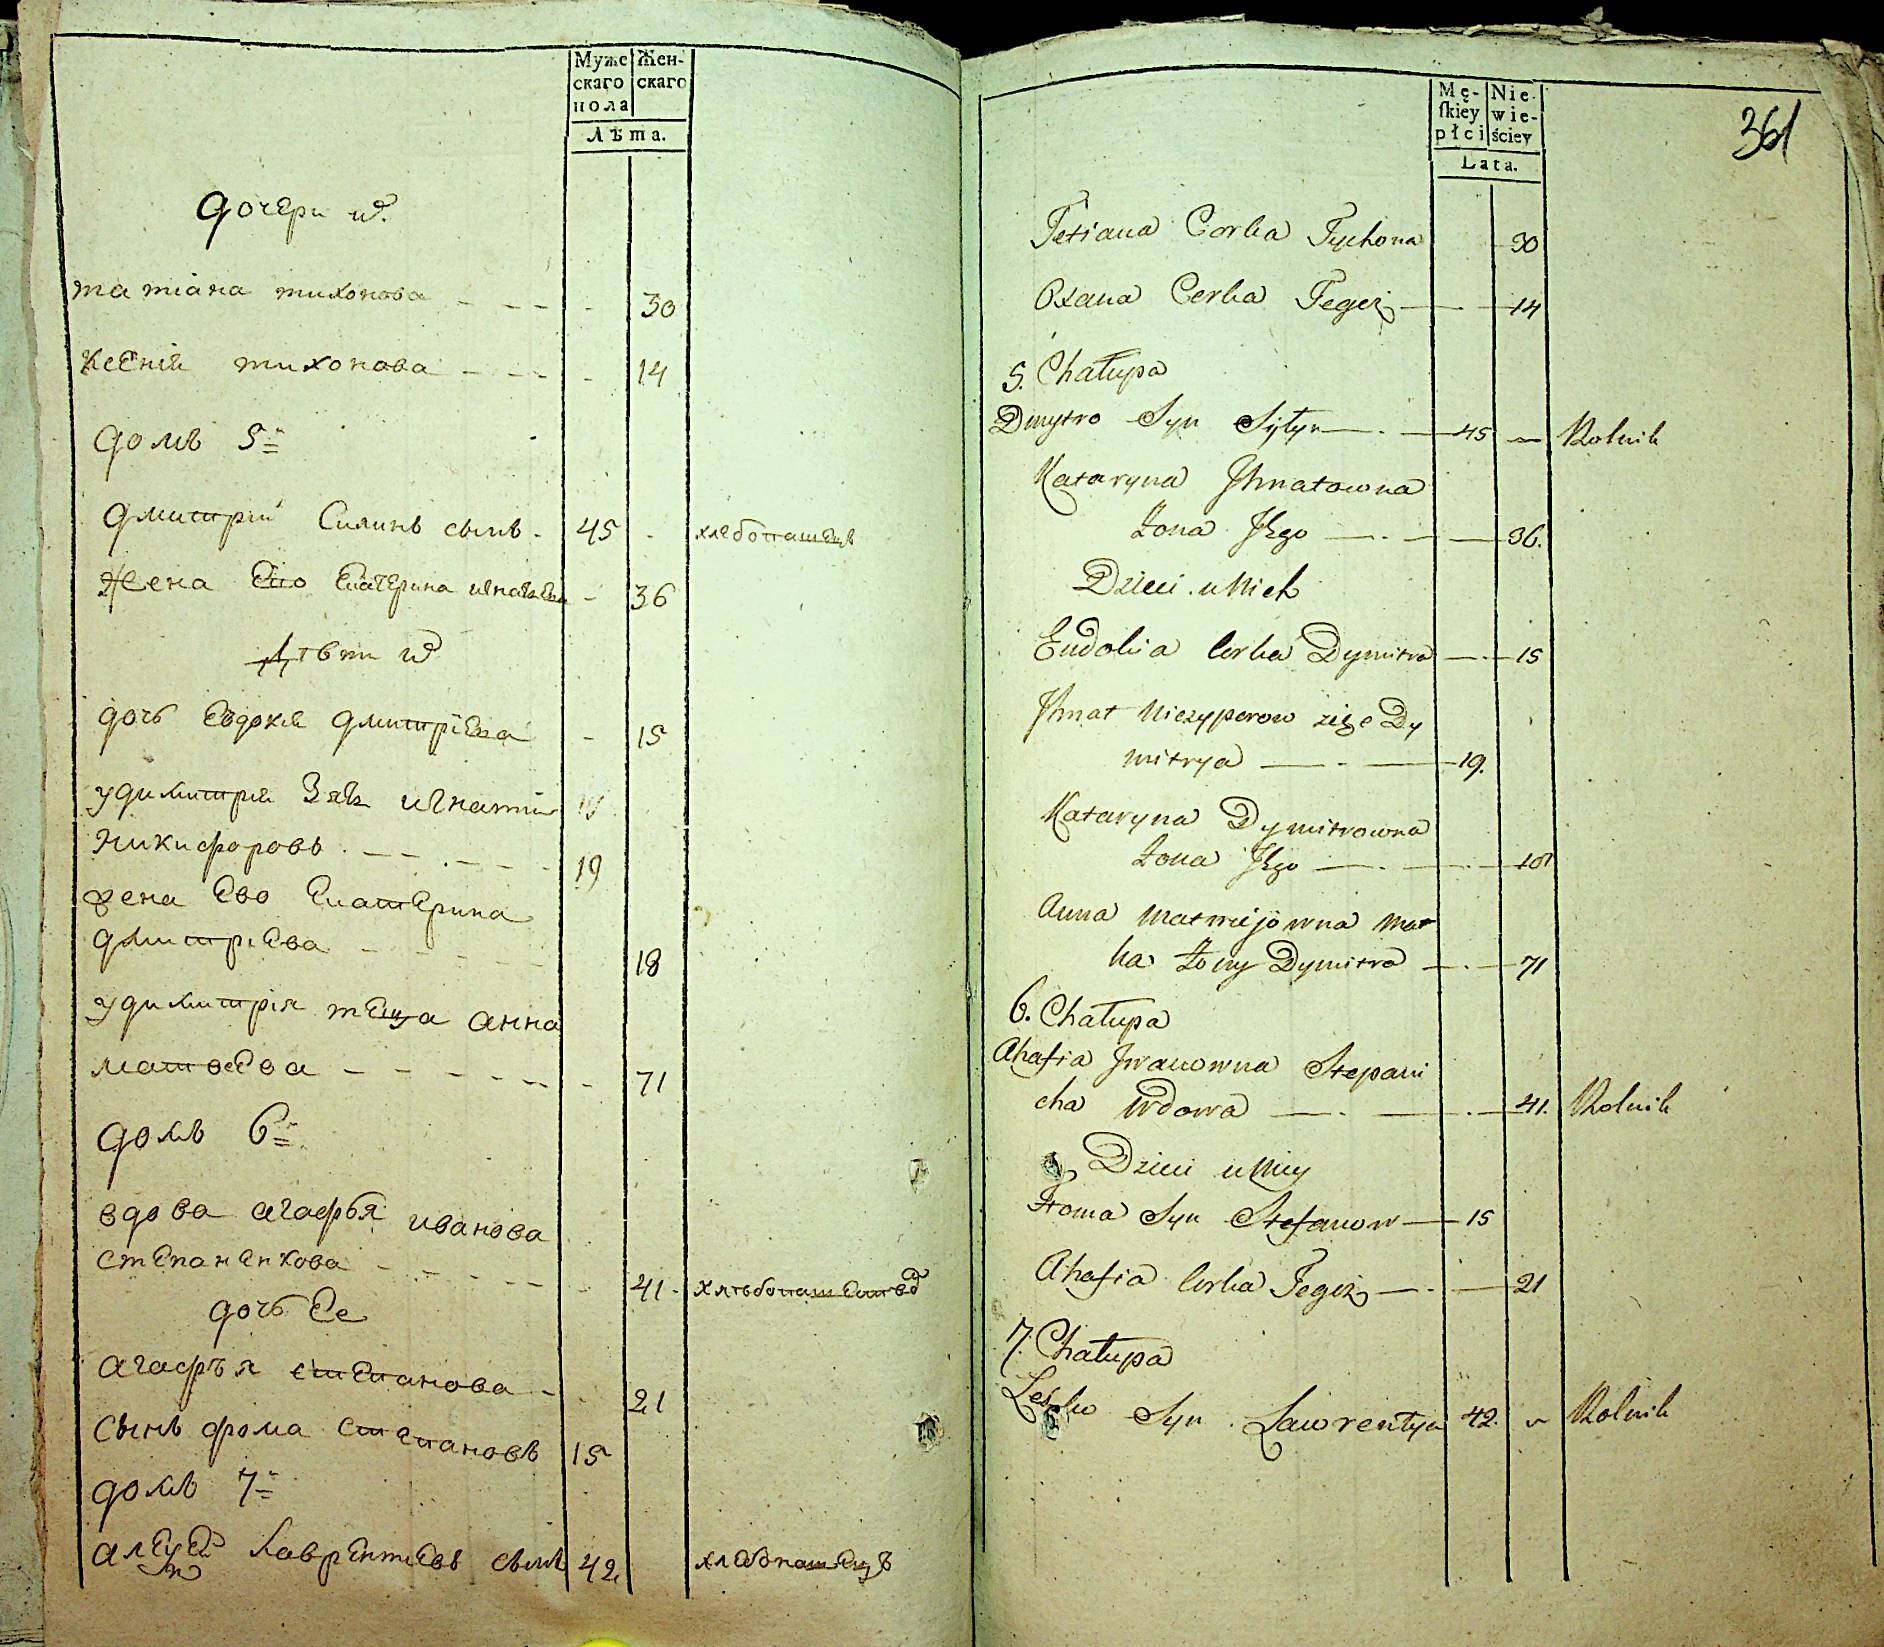 Муже Жен-
скаго скаго
пола
Лѣта.
дочери их
татiана тихонова - - - - 30
Ксенiя тихонова - - - - 14
домъ 5й
дмитрiй Силинъ сынъ - 45 - хлебопашецъ
Жена Его Екатерина игнатьева - 36
Дѣти их
дочь Евдокия дмитрiева - 15
удимитрия Зять игнатiй
Никифоровъ - - - - - 19
жена Ево Екатерина
дмитрiева - - - - - 18
удимитрiя теща анна
матвеева - - - - - - 71
домъ 6й
вдова агафья иванова
степаненкова - - - - - - 41 -
дочь Ее
агафья степанова - - 21
Сынъ фома степановъ 15
домъ 7й
алеѯей лаврентьевъ сынъ 42 хлебопашецъ
Mę- Nie-
ſkiey wie-
płci ściey
Lata.
361
Tetiana Corka Tychona 30
Oxana Corka Tegoż — 14
5. Chałupa
Dmytro Syn Syłyn — 45 Rolnik
Kataryna Ihnatowna
Żona Jego — 36.
Dzieci u Nich
Eudokia Corka Dymitra — 15
Ihnat Niczyporow zięć Dy
mitrya — 19.
Kataryna Dymitrowna
Żona Jego — 18
Anna Matwiejowna Mat
ka Żony Dymitra — 71
6. Chałupa
Ahafia Jwanowna Stepani
cha Wdowa — 41. Rolnik
Dzieci u Niey
Homa Syn Stefanow — 15
Ahafia Corka Tegoż — 21
7. Chałupa
Syn Lawrentyn 42. Rolnik